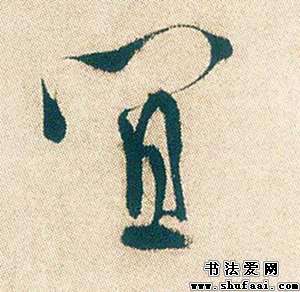 宜
书法爱网
www.shufaai.com